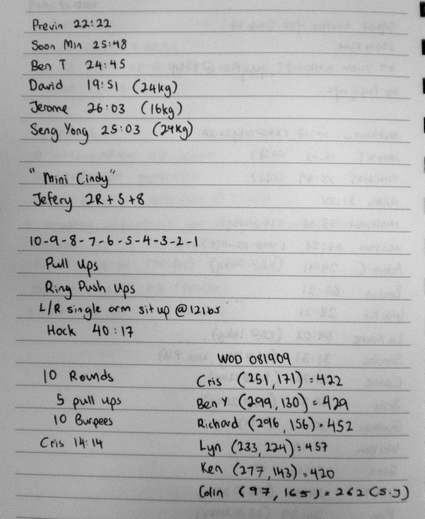 Previn 22:22
Soon Min 25:48
Ben T 24:45
David 19:51 (24kg)
Jerome 26:03 (16kg)
Seng Yong 25:03 (24kg)
"Mini Cindy"
Jefery 2R+5+8
10-9-8-7-6-5-4-3-2-1
Pull Ups
Ring Push Ups
L/R single arm situp @12lbs
Hock 40:17
10 Rounds
5 pull ups
10 Burpees
Cris 14:14
WOD 081909
Cris (251,171)=422
Ben Y (299,130)=429
Richard (296,156)=452
Lyn (233,224)=457
Ken (277,143)=420
Colin (97,165)=262(S.J)